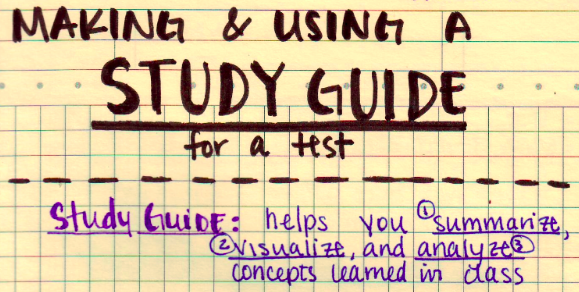 MAKING & USING A
STUDY GUIDE
for a test
Study Guide: helps you ① summarize,
② visualize, and analyze ③
concepts learned in class